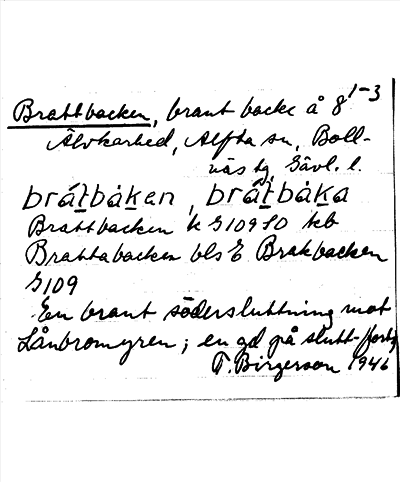 Brattbacken, brant backe å 8¹⁻³
Älvkarhed, Alfta sn, Boll-
näs tg, Gävl. l.
bråt̲båk̲en, bråt̲båk̲a
Brattbacken k G109SO kb
Brattabacken bls E Brakbacken
G109
En brant södersluttning mot
Lånbromyren; en gd på slutt-
T. Birgerson 1946